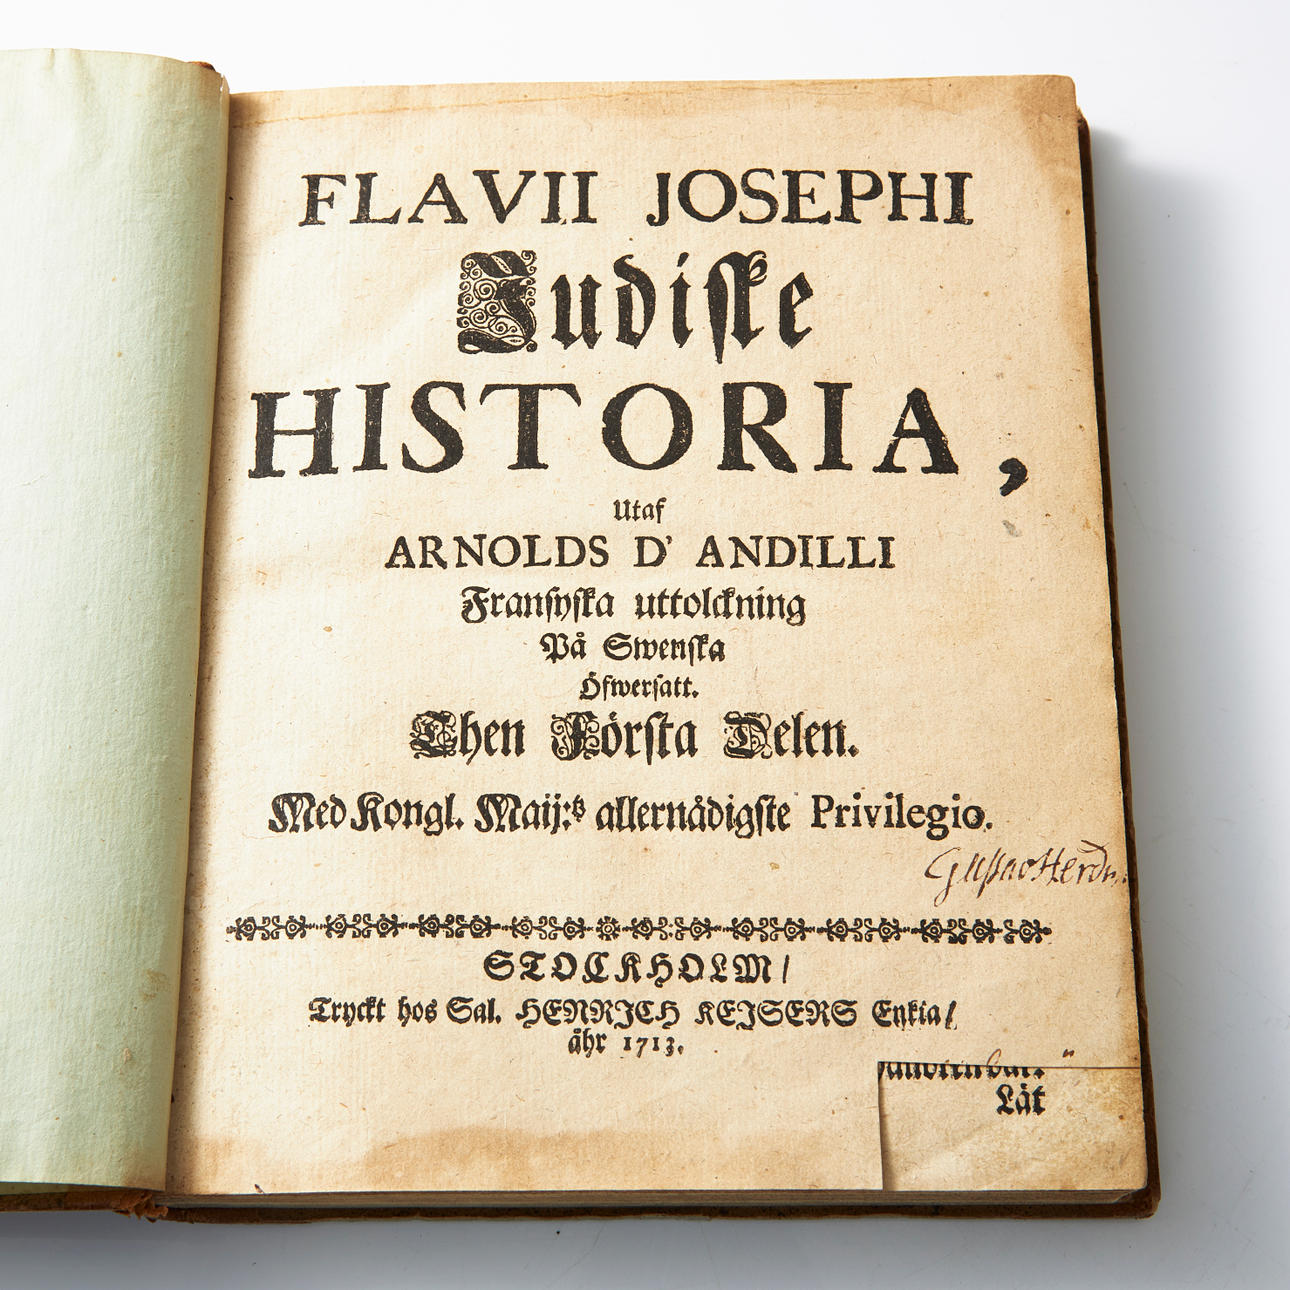 FLAVII JOSEPHI
Judiske
HISTORIA,
Utaf
ARNOLDS D' ANDILLI
Fransyska uttolckning
På Swenska
Öfwersatt.
Then Första Delen.
Med Kongl. Maij:tz allernådigste Privilegio.
STOCKHOLM/
Tryckt hos Sal. HENRICH KEISERS Enkia/
åhr 1713.
Lät